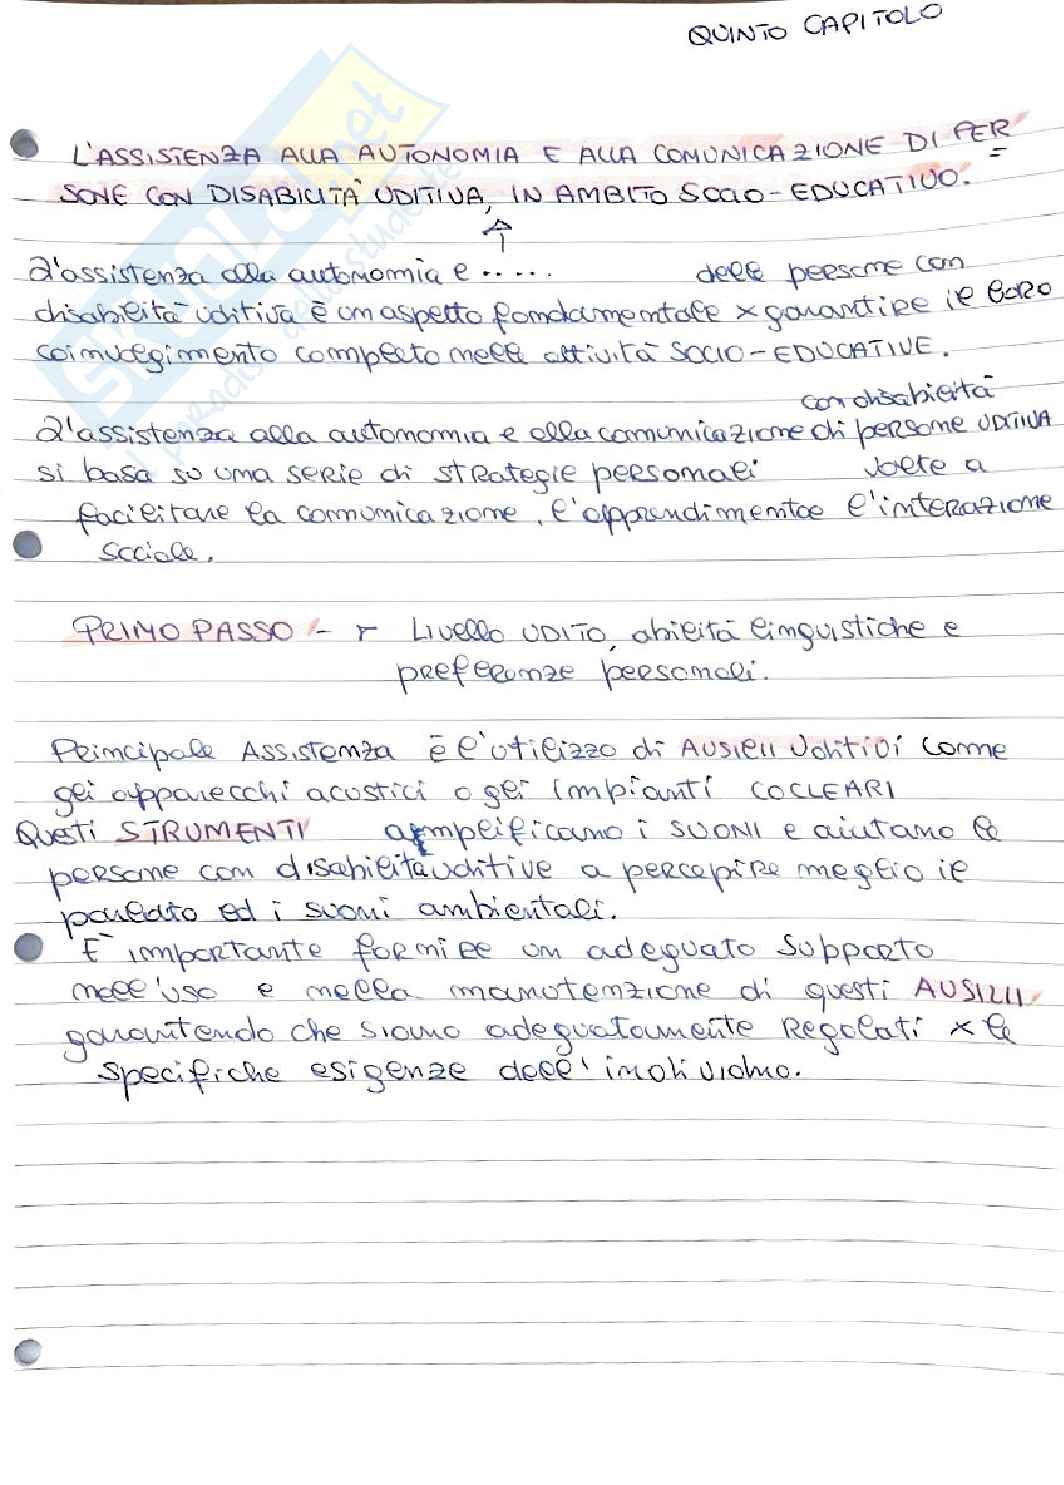 QUINTO CAPITOLO
L'ASSISTENZA ALLA AUTONOMIA E ALLA COMUNICAZIONE DI PER=
SONE CON DISABILITÀ UDITIVA, IN AMBITO SOCIO-EDUCATIVO.
L'assistenza alla autonomia e ..... delle persone con
disabilità uditiva è un aspetto fondamentale x garantire il loro
coinvolgimento completo nelle attività SOCIO-EDUCATIVE.
con disabilità
L'assistenza alla autonomia e alla comunicazione di persone UDITIVA
si basa su una serie di strategie personali volte a
facilitare la comunicazione, l'apprendimento e l'interazione
sociale.
PRIMO PASSO - Livello UDITO, abilità linguistiche e
preferenze personali.
Principale Assistenza è l'utilizzo di AUSILII Uditivi come
gli apparecchi acustici o gli impianti COCLEARI
Questi STRUMENTI amplificano i SUONI e aiutano le
persone con disabilità uditive a percepire meglio il
parlato ed i suoni ambientali.
È importante fornire un adeguato supporto
nell'uso e nella manutenzione di questi AUSILII
garantendo che siano adeguatamente Regolati x le
specifiche esigenze dell'individuo.
SKUOLA.net
il paradiso dello studente